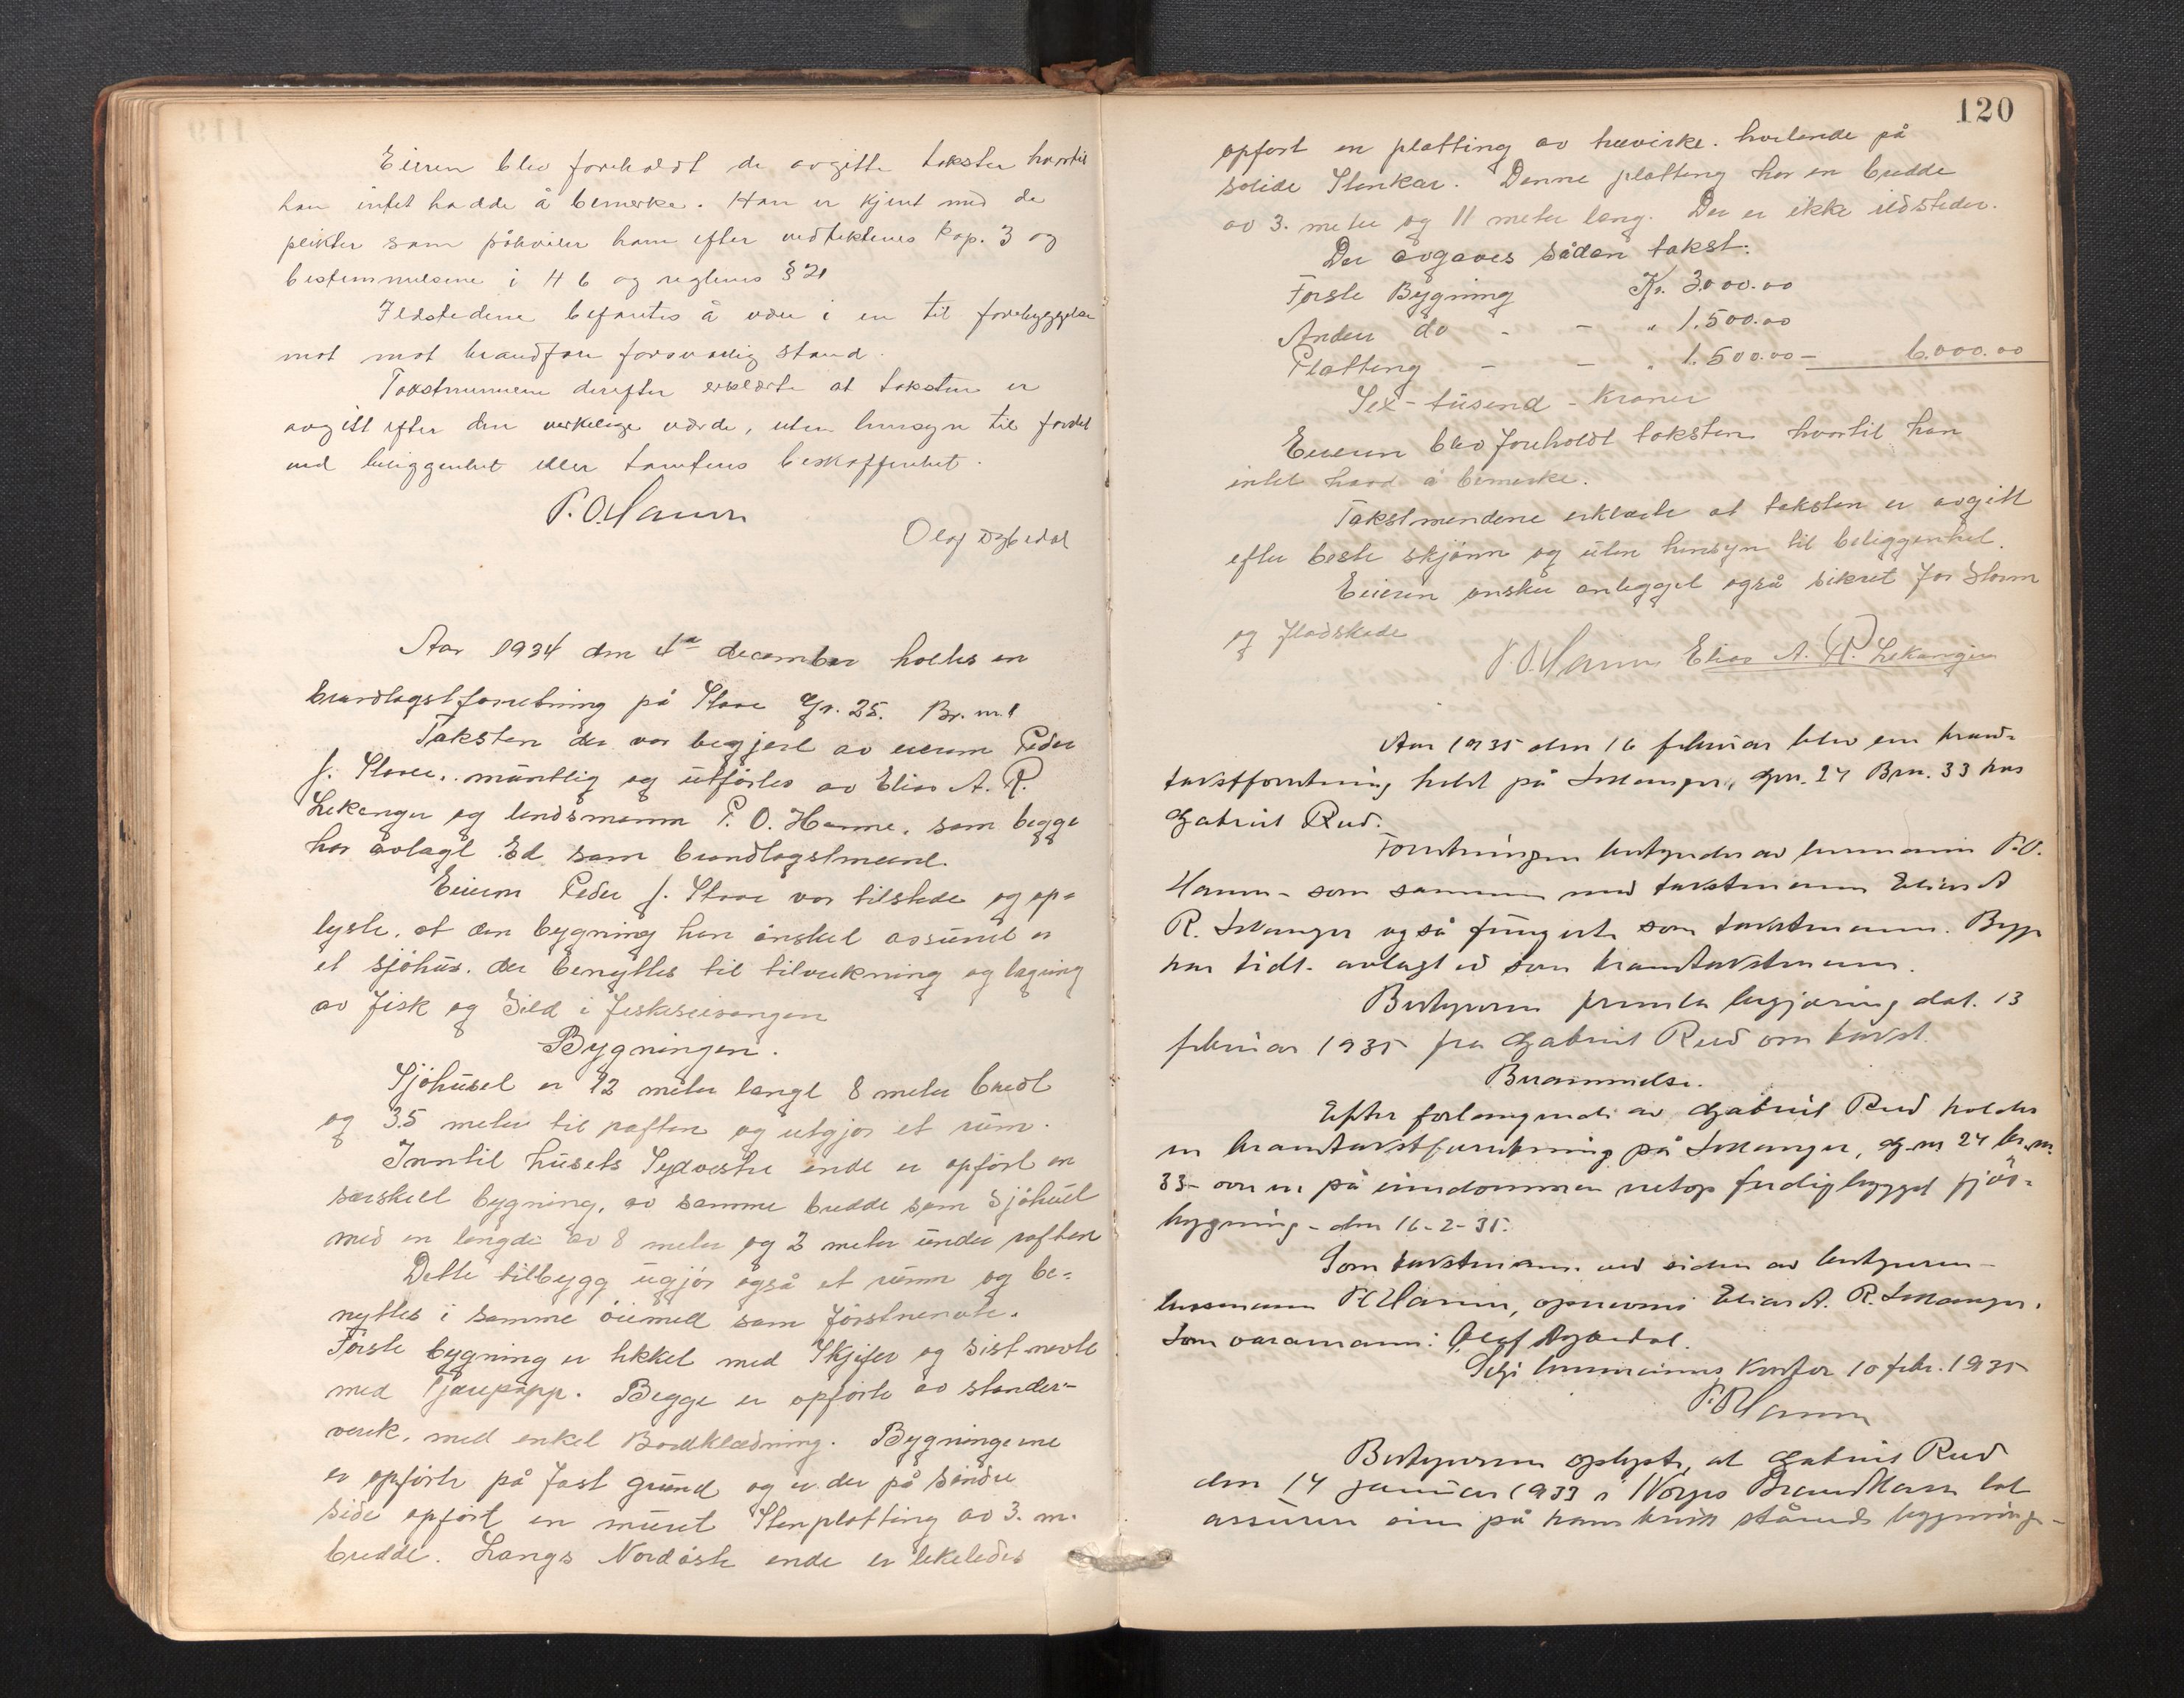 Eieren blev foreholdt de avgitte takster hvortil
han intet hadde å bemerke. Han er kjent med de
plikter som påhviler ham efter vedtektenes kap. 3 og
bestemmelsene i 46 og reglenes § 21
Ildstedene befantes å være i en til forebyggelse
mot mot brandfare forsvarlig stand.
Takstmennene derefter erklærte at taksten er
avgitt efter den verkelige værde, uten hensyn til fordel
ved beliggenhet eller tomtens beskaffenhet.
P. O. Hamre
Olaf Dybedal
Aar 1934 den 4de december holtes en
brandtagstforretning på Stave Gr. 25. Br. nr. 1
Taksten der var begjert av eieren Peder
J. Stave. muntlig og utførtes av Elias A. R.
Lekanger og lendsmann P. O. Hamre. som begge
har avlagt Ed som brandtagstmend.
Eieren Peder J. Stave var tilstede og op-
lyste. at den bygning han ønsket assuret er
et sjøhus. der benyttes til tilvirkning og lagring
av Fisk og Sild i fiskeseisongen
Bygningen.
Sjøhuset er 12 meter langt 8 meter bredt
og 3.5 meter til raften og utgjør et rum.
Inntil husets Sydvestre ende er opført en
særskilt bygning, av samme bredde som Sjøhuset
med en lengde av 8 meter og 2 meter under raften
Dette tilbygg ugjør også et rumm og be-
nyttes i samme øiemed som førstnevnte.
Første bygning er tekket med Skjifer og sistnevte
med Tjærepapp. Begge er opførte av stender-
verk, med enkel Bordklædning. Bygningerne
er opførte på fast grund og er der på søndre
side opført en muret Stenplatting av 3. m.
bredde. Langs Nordøste ende er likeledes
120
opført en platting av trevirke. hvilende på
solide Stenkar. Denne platting har en bredde
av 3. meter og 11 meter lang. Der er ikke ildsteder.
Der avgaves sådan takst:
Første Bygning Kr. 3.000.00
Anden do - - " 1.500.00
Platting - - " 1.500.00 — 6.000.00
Sex-tusend - Kroner
Eieren blev foreholdt taksten hvortil han
intet havd å bemerke.
Takstmendene erklærte at taksten er avgitt
efter beste skjønn og uten hensyn til beliggenhet.
Eieren ønsker anlegget også sikret for Storm
og flodskade
P. O. Hamre Elias A. R. Lekanger
Aar 1935 den 16 februar blev en brand-
takstforretning holdt på Lekanger, gnr. 24 Brn. 33 hos
Gabriel Rud.
Forretningen bestyredes av lensmann P. O.
Hamre - som sammen med takstmann Elias A
R. Lekanger også fungerte som takstmann. Begge
har tidl. avlagt ed som brandtakstmenn.
Bestyreren fremla begjæring dat. 13
februar 1935 fra Gabriel Rud om takst.
Berammelse.
Efter forlangende av Gabriel Rud holdes
en brandtakstforretning på Lekanger, g. nr 24 br. nr.
33 - over en på eiendommen netop ferdigbygget fjøs-
bygning - den 16-2-35.
Som takstmenn ved siden av bestyreren -
lensmann P O Hamre, opnevnes Elias A. R. Lekanger.
Som varamann: Olaf Dybedal.
Selje lensmanns Kontor 10 febr. 1935
P. O. Hamre
Bestyreren oplyste, at Gabriel Rud
den 14 januar 1933 i Norges Brandkasse lot
assurere sine på hans bruk stående bygninger -